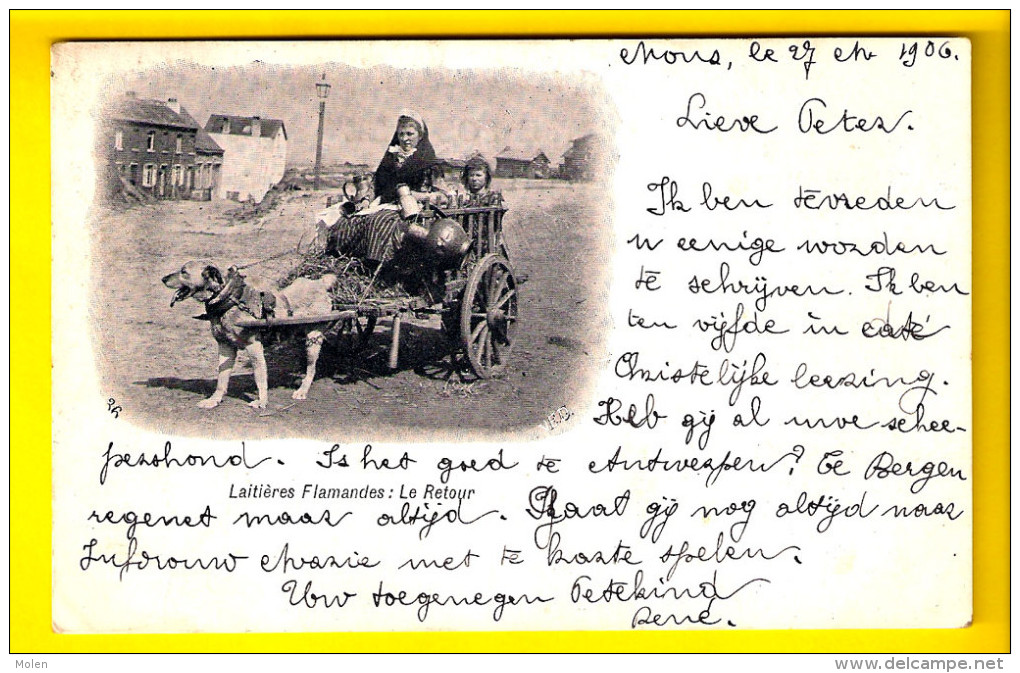 Mons, le 27 M 1906.
Lieve Peter.
Ik ben tevreden
u eenige worden
te schrijven. Ik ben
ten vijfde in
Christelijke leering.
Heb gij al uwe schee-
pershond. Is het goed te Antwerpen? Te Bergen
Laitières Flamandes : Le Retour
regenet maar altijd. Gaat gij nog altijd naar
Jufdrouw Marie met te karte spelen.
Uw toegenegen Petekind
René.
26
Molen
www.delcampe.net